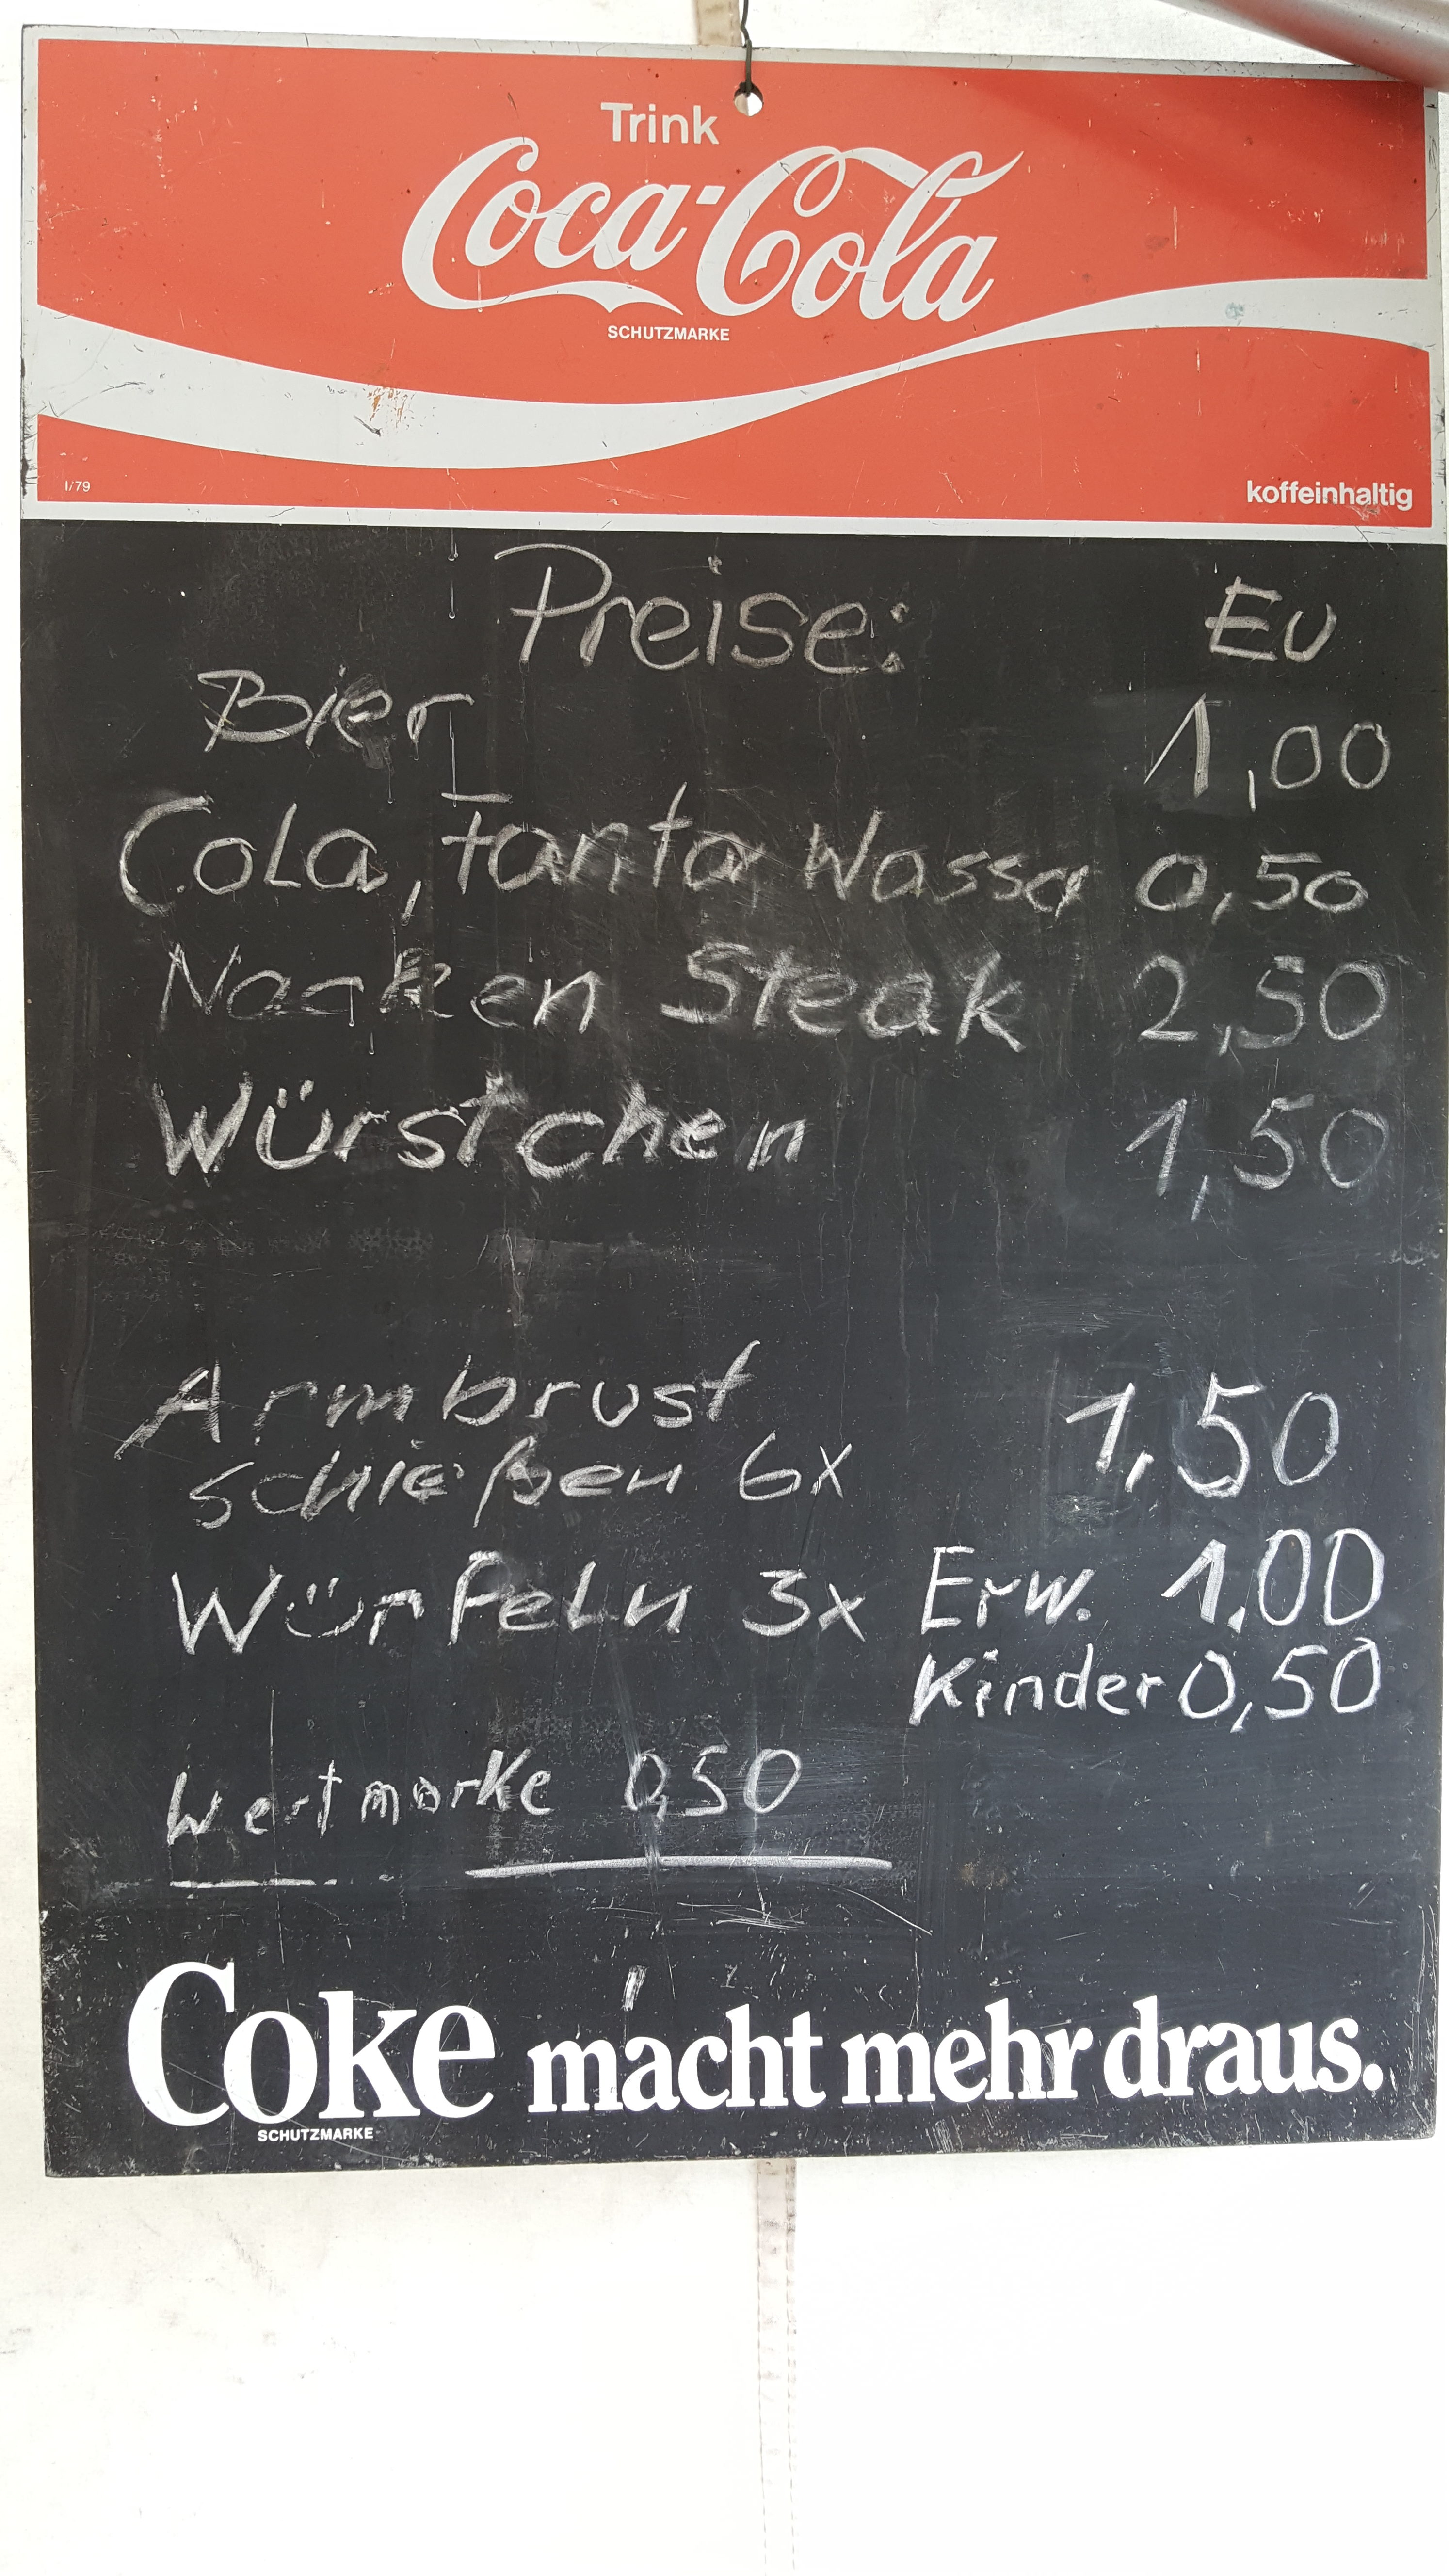 Trink
Coca-Cola
SCHUTZMARKE
I/79
koffeinhaltig
Preise: EU
Bier 1,00
Cola, Fanta, Wassa 0,50
Nacken Steak 2,50
Würstchen 1,50
Armbrust
schießen 6x 1,50
Würfeln 3x Erw. 1.00
Kinder 0,50
Wertmarke 0,50
Coke macht mehr draus.
SCHUTZMARKE